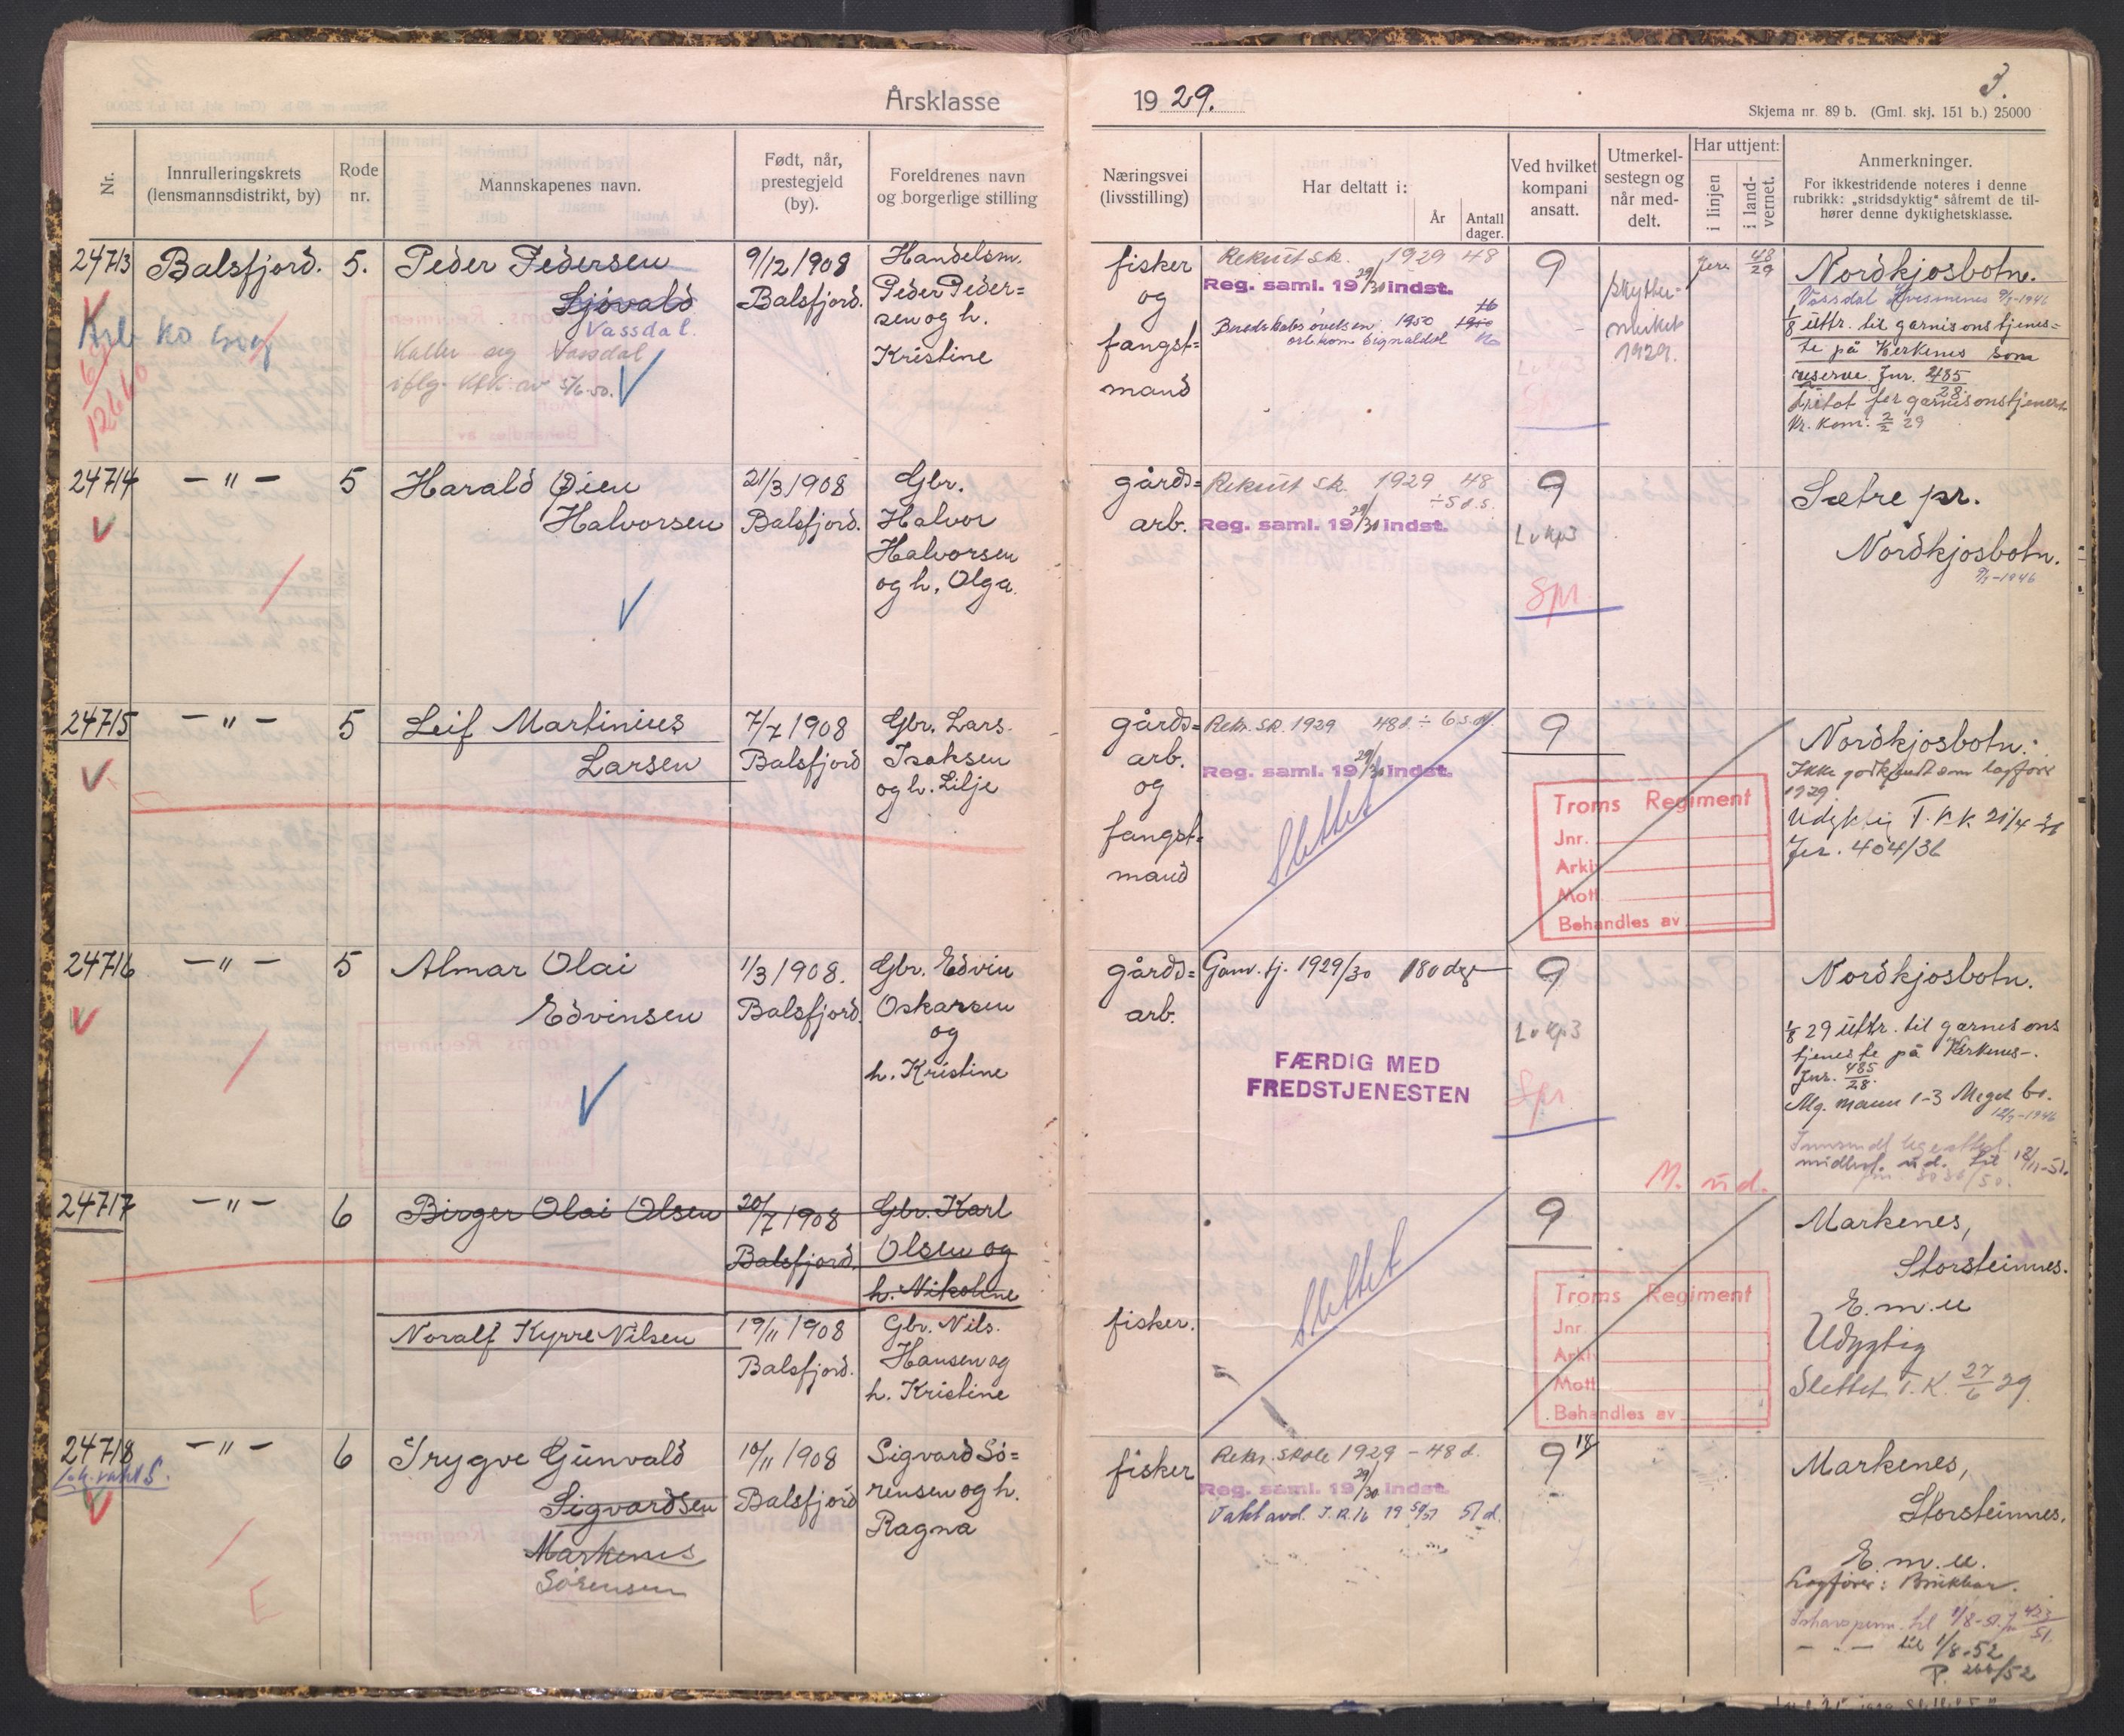 Årsklasse
1929.
3.
Skjema nr. 89 b. (Gml. skj. 151 b.) 25000
Nr.
Innrulleringskrets
(lensmannsdistrikt, by)
Rode
nr.
Mannskapenes navn.
Født, når,
prestegjeld
(by).
Foreldrenes navn
og borgerlige stilling
Næringsvei
(livsstilling)
Har deltatt i:
År
Antall
dager.
Ved hvilket
kompani
ansatt.
Utmerkel-
sestegn og
når med-
delt.
Har uttjent:
i linjen
i land-
vernet.
Anmerkninger.
For ikkestridende noteres i denne
rubrikk: „stridsdyktig" såfremt de til-
hører denne dyktighetsklasse.
24713
Balsfjord.
5.
Peder Pedersen
Sjövald
Vassdal.
Kaller seg Vassdal
iflg. 5/6-50.
9/12 1908
Balsfjord.
Handelsm.
Peder Peder=
sen og h.
Kristine
12660
fisker
og
fangst=
mand
Rekrut sk. 1929 48
Reg. saml. 19 29/30 indst.
Beredskabsövelsen 1950
9
1929.
48
29
Nordkjosbotn.
Vassdal 9/9-1946
1/8 uttr. til garnisonstjenes=
te på Kirkenes som
reserve Jnr. 485
28
garnisonstjeneste
Kr. kom. 2/2 29
24714
— " —
5
Harald Øien
Halvorsen
21/3 1908
Balsfjord.
Gbr.
Halvor
Halvorsen
og h. Olga.
gårds=
arb.
Rekrut sk. 1929 48
÷ 5 d.s.
Reg. saml. 19 29/30 indst.
9
Lvkp3
Spr.
Sætre pr.
Nordkjosbotn.
9/9-1946
24715
— " —
5
Leif Martinius
Larsen
7/7 1908
Balsfjord
Gbr. Lars
Isaksen
og h. Lilje
gårds=
arb.
og
fangst=
mand
Rekr. sk. 1929 48 d. ÷ 6 s.d.
Reg. saml. 19 29/30 indst.
Slettet
9
Troms Regiment
Jnr.
Arkiv
Mott.
Behandles av
Nordkjosbotn.
Ikke godkjendt som lagfører
1929
Udyktig T.K.K. 21/4-36
Jnr. 404/36
24716
— " —
5
Almar Olai
Edvinsen
1/3 1908.
Balsfjord.
Gbr. Edvin
Oskarsen
og
h. Kristine
gårds=
arb.
Garn. tj. 1929/30 180 dgr
FÆRDIG MED
FREDSTJENESTEN
9
Lvkp3
Spr.
M. ud.
Nordkjosbotn.
1/8 29 uttr. til garnisons
tjeneste på Kirkenes.
Jnr. 485
28.
Mg. mann 1-3 Meget br.
12/9-1946
midlert. ud. til 12/11-51.
24717
— " —
6
Birger Olai Olsen
20/7 1908
Balsfjord.
Gbr. Karl
Olsen og
h. Nikoline
Noralf Kyrre Nilsen
19/11 1908
Balsfjord.
Gbr. Nils
Hansen og
h. Kristine
fisker.
Slettet
9
Troms Regiment
Jnr.
Arkiv
Mott.
Behandles av
Markenes,
Storsteinnes.
E.m.u
Udygtig
Slettet T.K. 27/6 29
24718
— " —
6
Trygve Gunvald
Sigvardsen
Markenes
Sörensen
E
10/11 1908
Balsfjord
Sigvard Sö=
rensen og h.
Ragna
fisker
Rekr. skole 1929 - 48 d.
Reg. saml. 19 29/30 indst.
Vakt avd. I.R.16 19 50/51 51 d.
9
Markenes,
Storsteinnes.
E.m.u.
Lagfører: Brukbar.
til 1/8-51. 423
51.
— " — til 1/8-52
P. 266/52